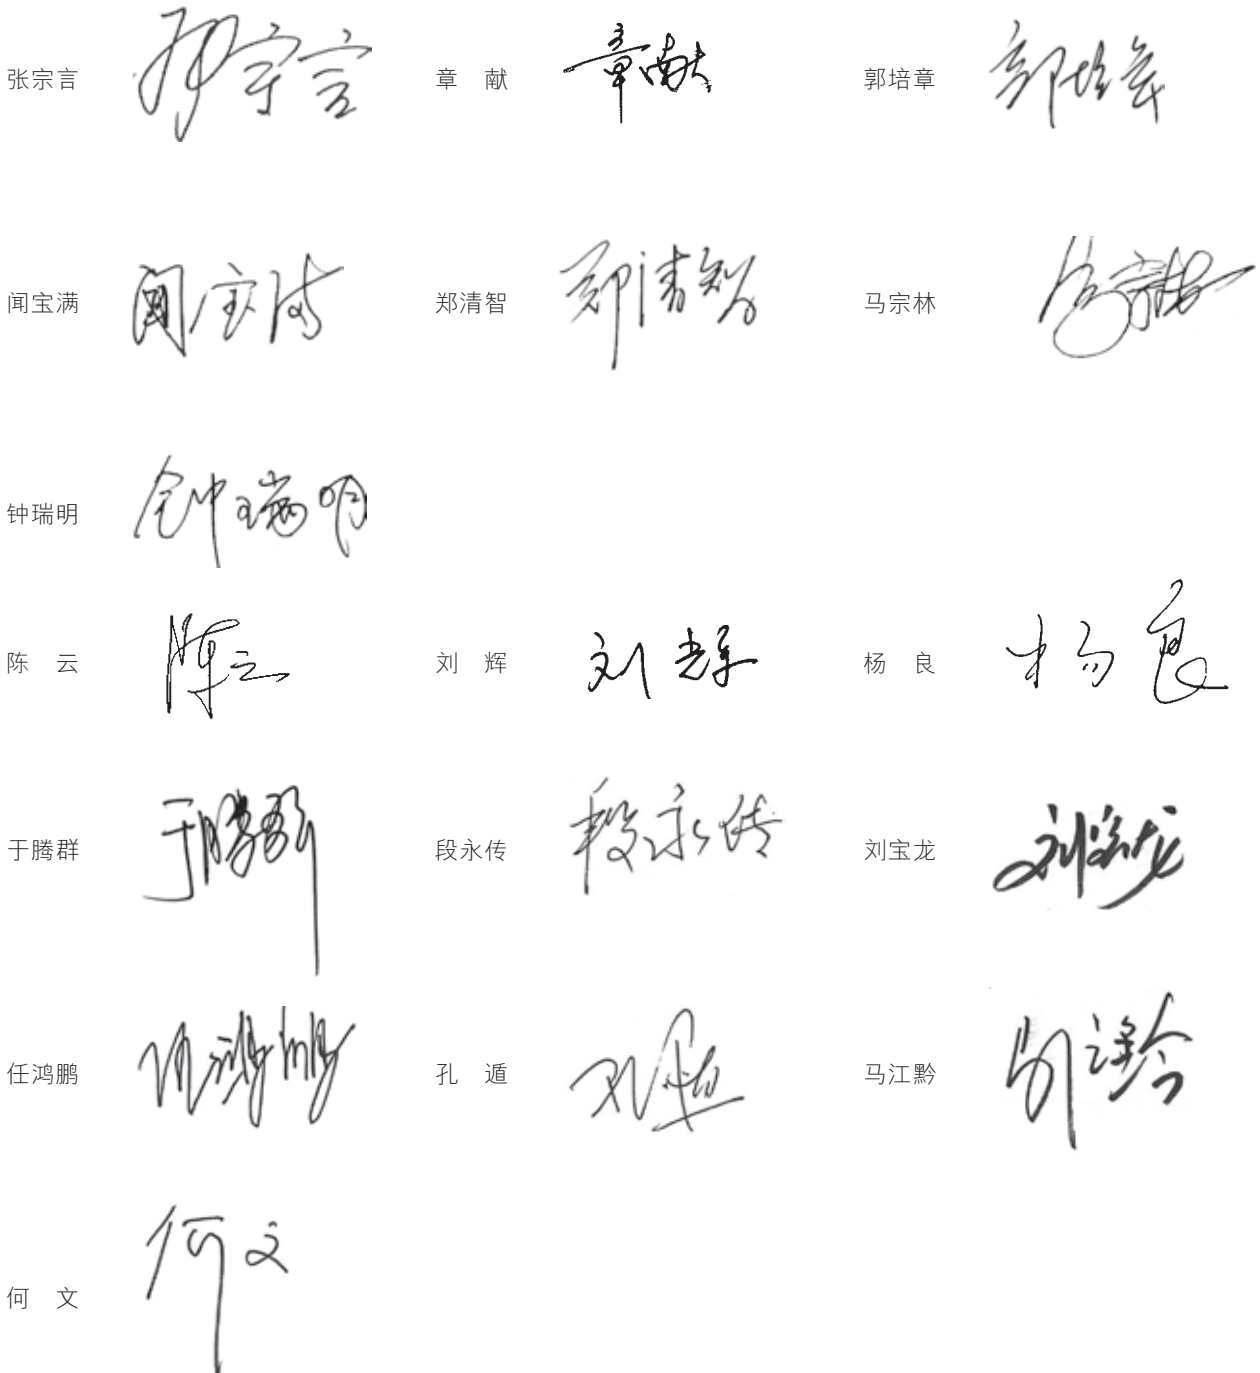 张宗言 张宗言 章 献 章献 郭培章 郭培章
闻宝满 闻宝满 郑清智 郑清智 马宗林 马宗林
钟瑞明 钟瑞明
陈 云 陈云 刘 辉 刘辉 杨 良 杨良
于腾群 于腾群 段永传 段永传 刘宝龙 刘宝龙
任鸿鹏 任鸿鹏 孔 遁 孔遁 马江黔 马江黔
何 文 何文